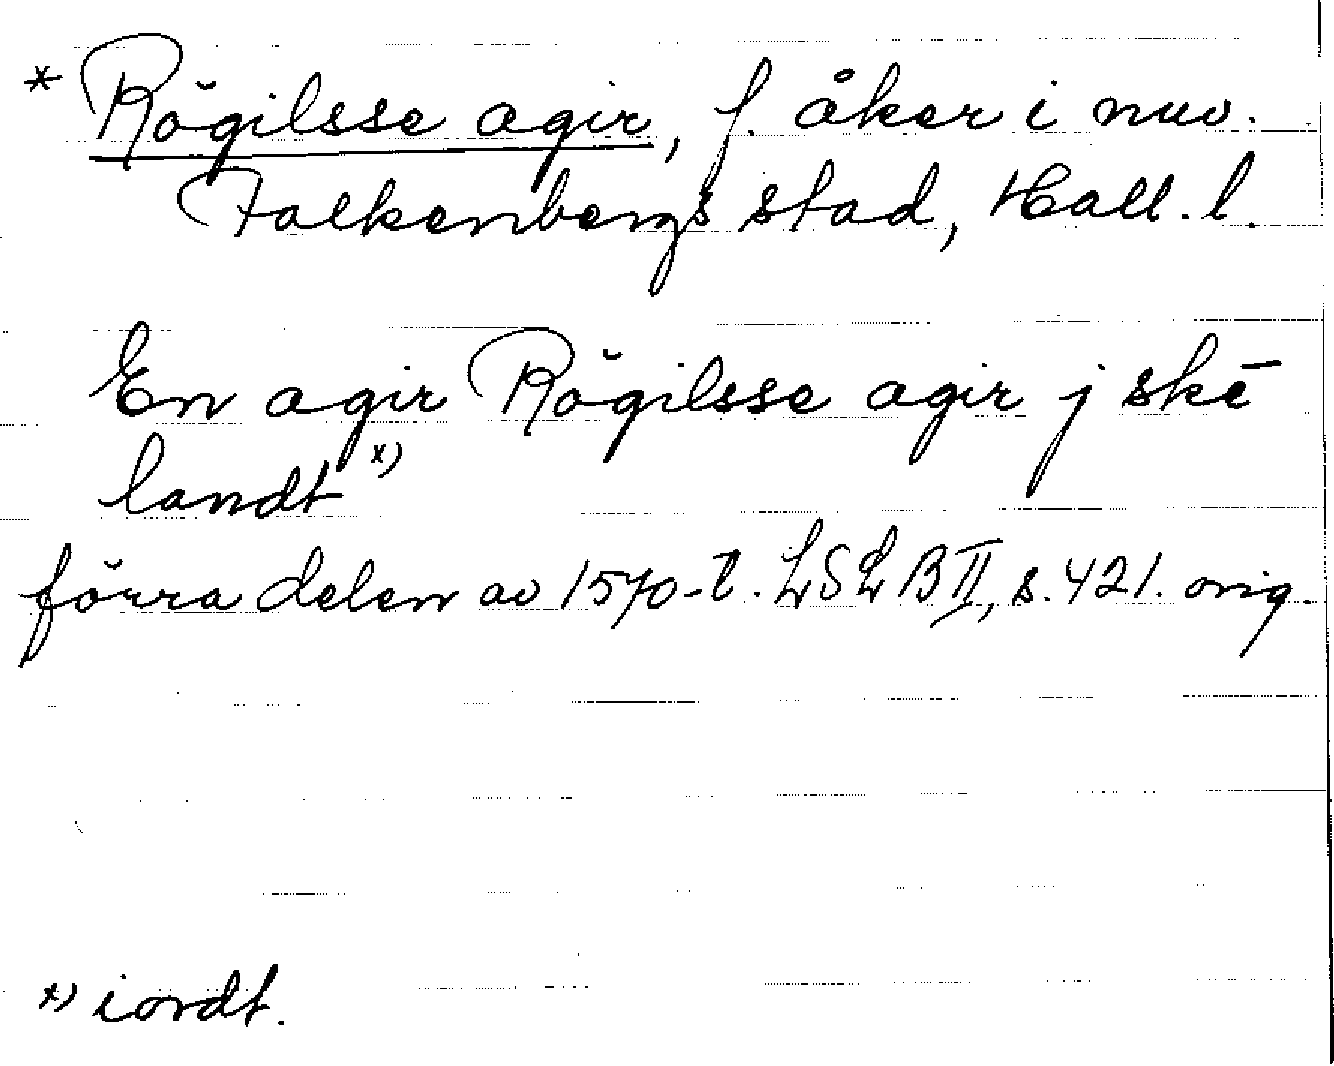 * Rögilsse agir, f. åker i nuv.
Falkenbergs stad, Hall. l.
En agir Rögilsse agir j skē
landt x)
förra delen av 1570-t. LSLB II, s. 421. orig.
x) iordt.